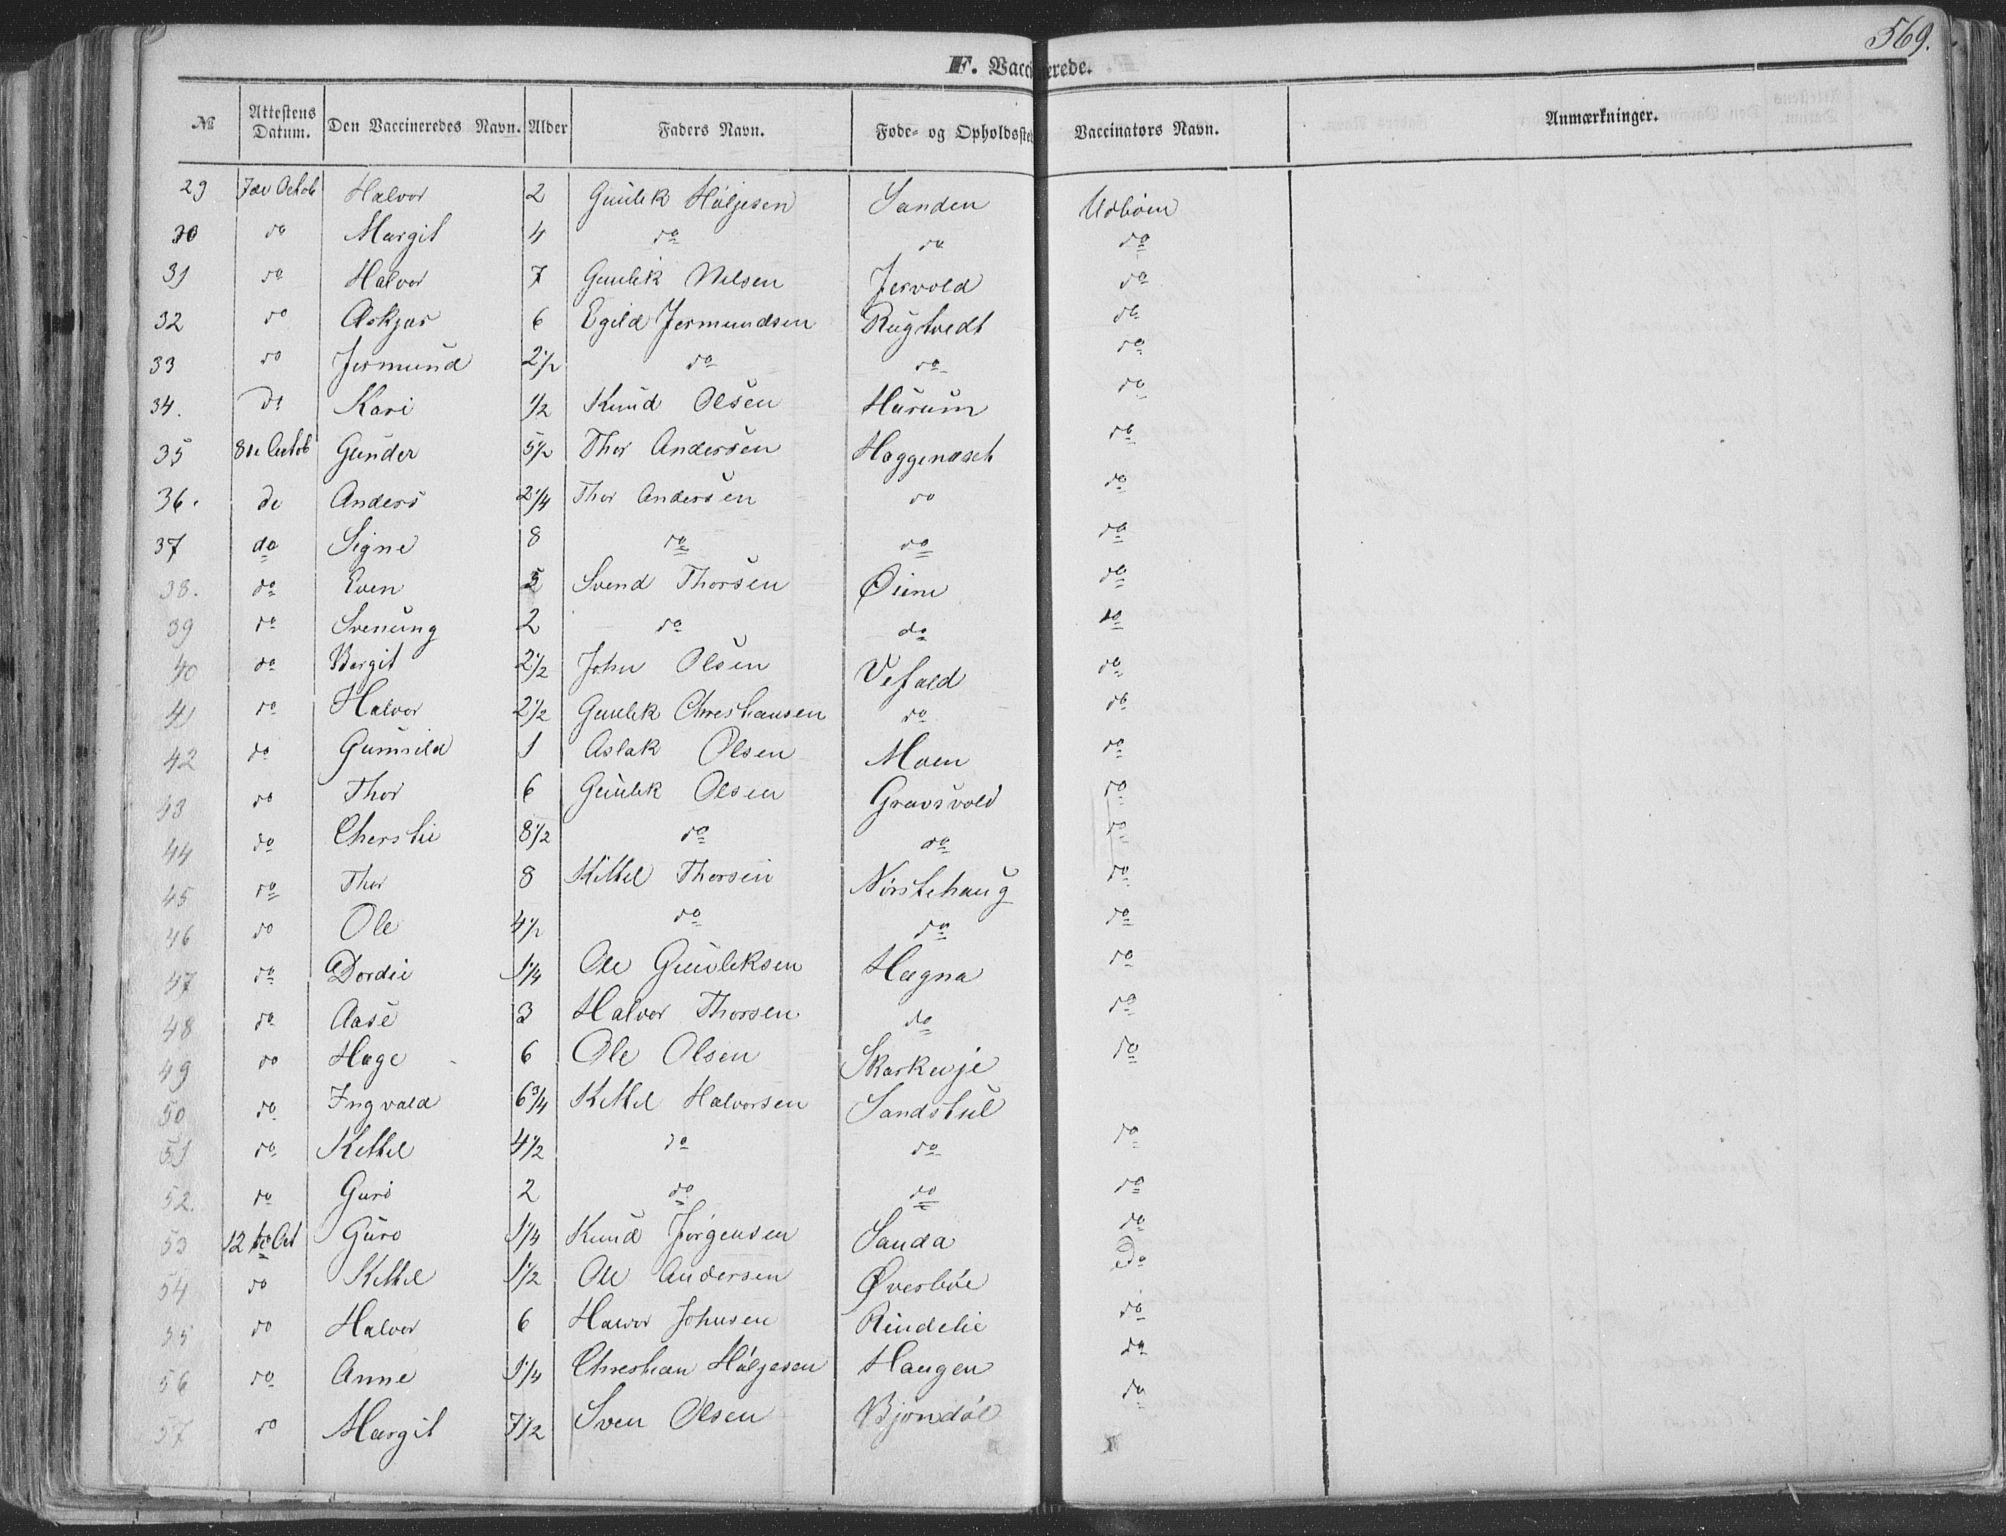 569.
F. Vaccinerede.
№ Attestens Datum. Den Vaccineredes Navn. Alder Faders Navn. Føde- og Opholdssted Vaccinators Navn. Anmærkninger.
29 7de Octob Halvor 2 Gunlek Høljesen Sanden Udbøen
30 do Margit 4 do do do
31 do Halvor 7 Gunlek Nilsen Jervold do
32 do Askjær 6 Egild Jermundsen Rugtvedt do
33 do Jermund 2 1/2 do do do
34. do Kari 1/2 Knud Olsen Hurum do
35 8de Octob Gunder 5 1/2 Thor Andersen Haggenæset do
36. do Anders 2 1/4 Thor Andersen do do
37 do Signe 8 do do do
38. do Even 5 Svend Thorsen Øiene do
39 do Svenung 2 do do do
40 do Bergit 2 1/2 John Olsen Vefald do
41 do Halvor 2 1/2 Gunlek Christiansen do do
42 do Gunnild 1 Aslak Olsen Moen do
43 do Thor 6 Gunlek Olsen Gravsvold do
44 do Cherstie 8 1/2 do do do
45 do Thor 8 Kittel Thorsen Nørstehaug do
46 do Ole 4 1/2 do do do
47 do Dordie 1 1/4 Ole Gunleksen Hægna do
48 do Aase 3 Halvor Thorsen do do
49 do Hæge 6 Ole Olsen Skarkeuje do
50 do Ingvald 6 3/4 Kittel Halvorsen Sandstul
51 do Kittel 4 1/2 do do do
52. do Guro 2 do do do
53 12te Oct Guro 1 1/4 Knud Jørgensen Sanda do
54 do Kittel 1 1/2 Ole Andersen Øverbøe Do
55 do Halvor 6 Halvor Johnsen Rindelie do
56 do Anne 1 1/4 Christian Høljesen Haugen do
57 do Margit 7 1/2 Sven Olsen Bjøndøl do